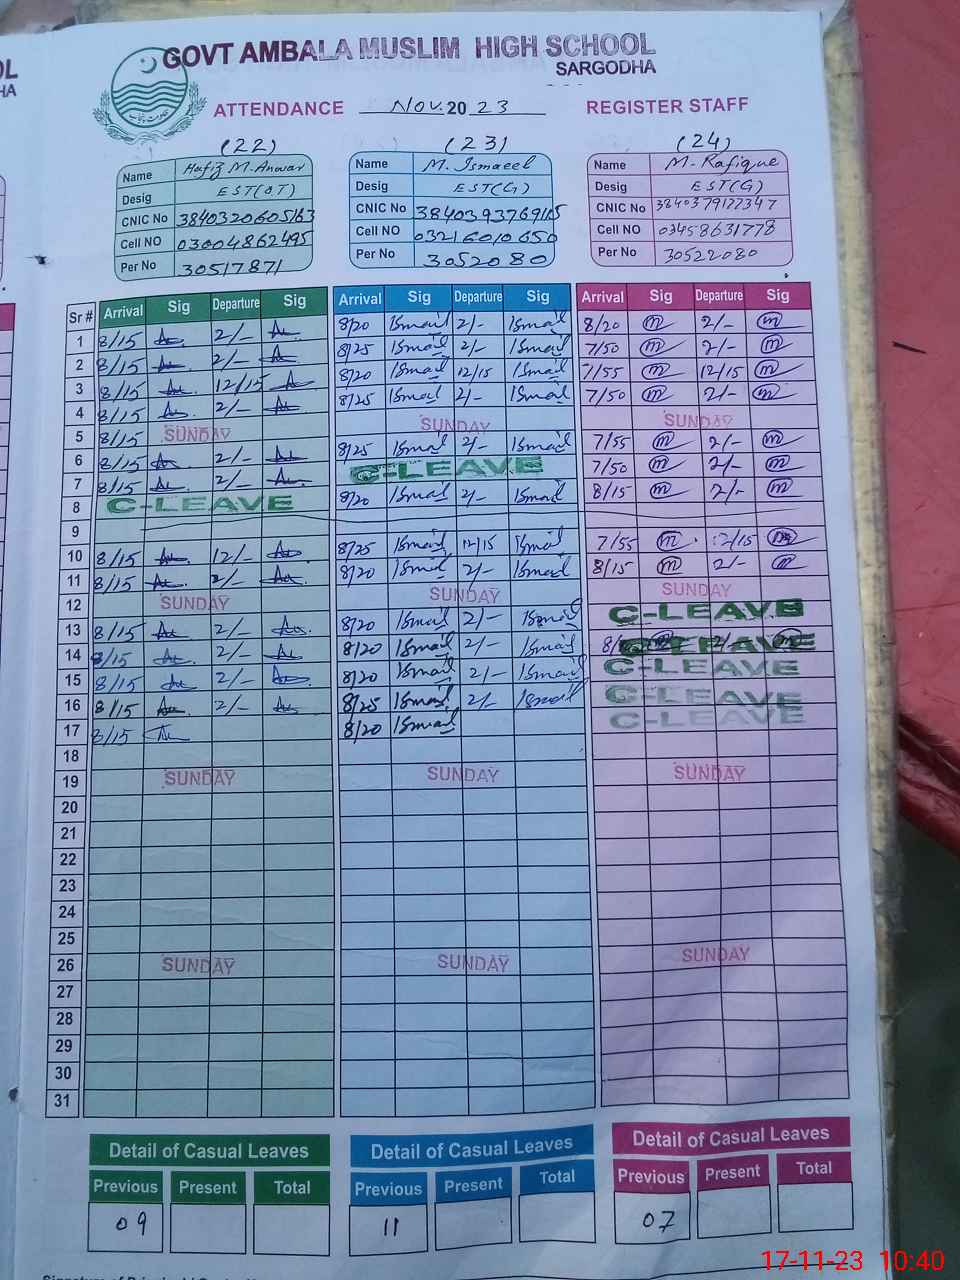 GOVT AMBALA MUSLIM HIGH SCHOOL
SARGODHA
ATTENDANCE Nov. 20 23 REGISTER STAFF
(22) (23) (24)
Name Hafiz M. Anwar Name M. Ismaeel Name M. Rafique
Desig EST(O.T) Desig EST(G) Desig EST(G)
CNIC No 3840320605163 CNIC No 3840393769115 CNIC No 3840379177347
Cell NO 03004862495 Cell NO 03216010650 Cell NO 03458631778
Per No 30517871 Per No 3052080 Per No 30522080
Sr # Arrival Sig Departure Sig Arrival Sig Departure Sig Arrival Sig Departure Sig
1 8/15 2/- 8/20 Ismail 2/- Ismail 8/20 m 2/- m
2 8/15 2/- 8/25 Ismail 2/- Ismail 7/50 m 2/- m
3 8/15 12/15 8/20 Ismail 12/15 Ismail 7/55 m 12/15 m
4 8/15 2/- 8/25 Ismail 2/- Ismail 7/50 m 2/- m
5 8/15 SUNDAY SUNDAY SUNDAY
6 8/15 2/- 8/25 Ismail 2/- Ismail 7/55 m 2/- m
7 8/15 2/- C-LEAVE 7/50 m 2/- m
8 C-LEAVE 8/20 Ismail 2/- Ismail 8/15 m 2/- m
9
10 8/15 12/- 8/25 Ismail 12/15 Ismail 7/55 m 12/15 m
11 8/15 2/- 8/20 Ismail 2/- Ismail 8/15 m 2/- m
12 SUNDAY SUNDAY SUNDAY
13 8/15 2/- 8/20 Ismail 2/- Ismail C-LEAVE
14 8/15 2/- 8/20 Ismail 2/- Ismail C-LEAVE
15 8/15 2/- 8/20 Ismail 2/- Ismail C-LEAVE
16 8/15 2/- 8/25 Ismail 2/- Ismail C-LEAVE
17 8/15 8/20 Ismail C-LEAVE
18
19 SUNDAY SUNDAY SUNDAY
20
21
22
23
24
25
26 SUNDAY SUNDAY SUNDAY
27
28
29
30
31
Detail of Casual Leaves Detail of Casual Leaves Detail of Casual Leaves
Previous Present Total Previous Present Total Previous Present Total
09 11 07
17-11-23 10:40